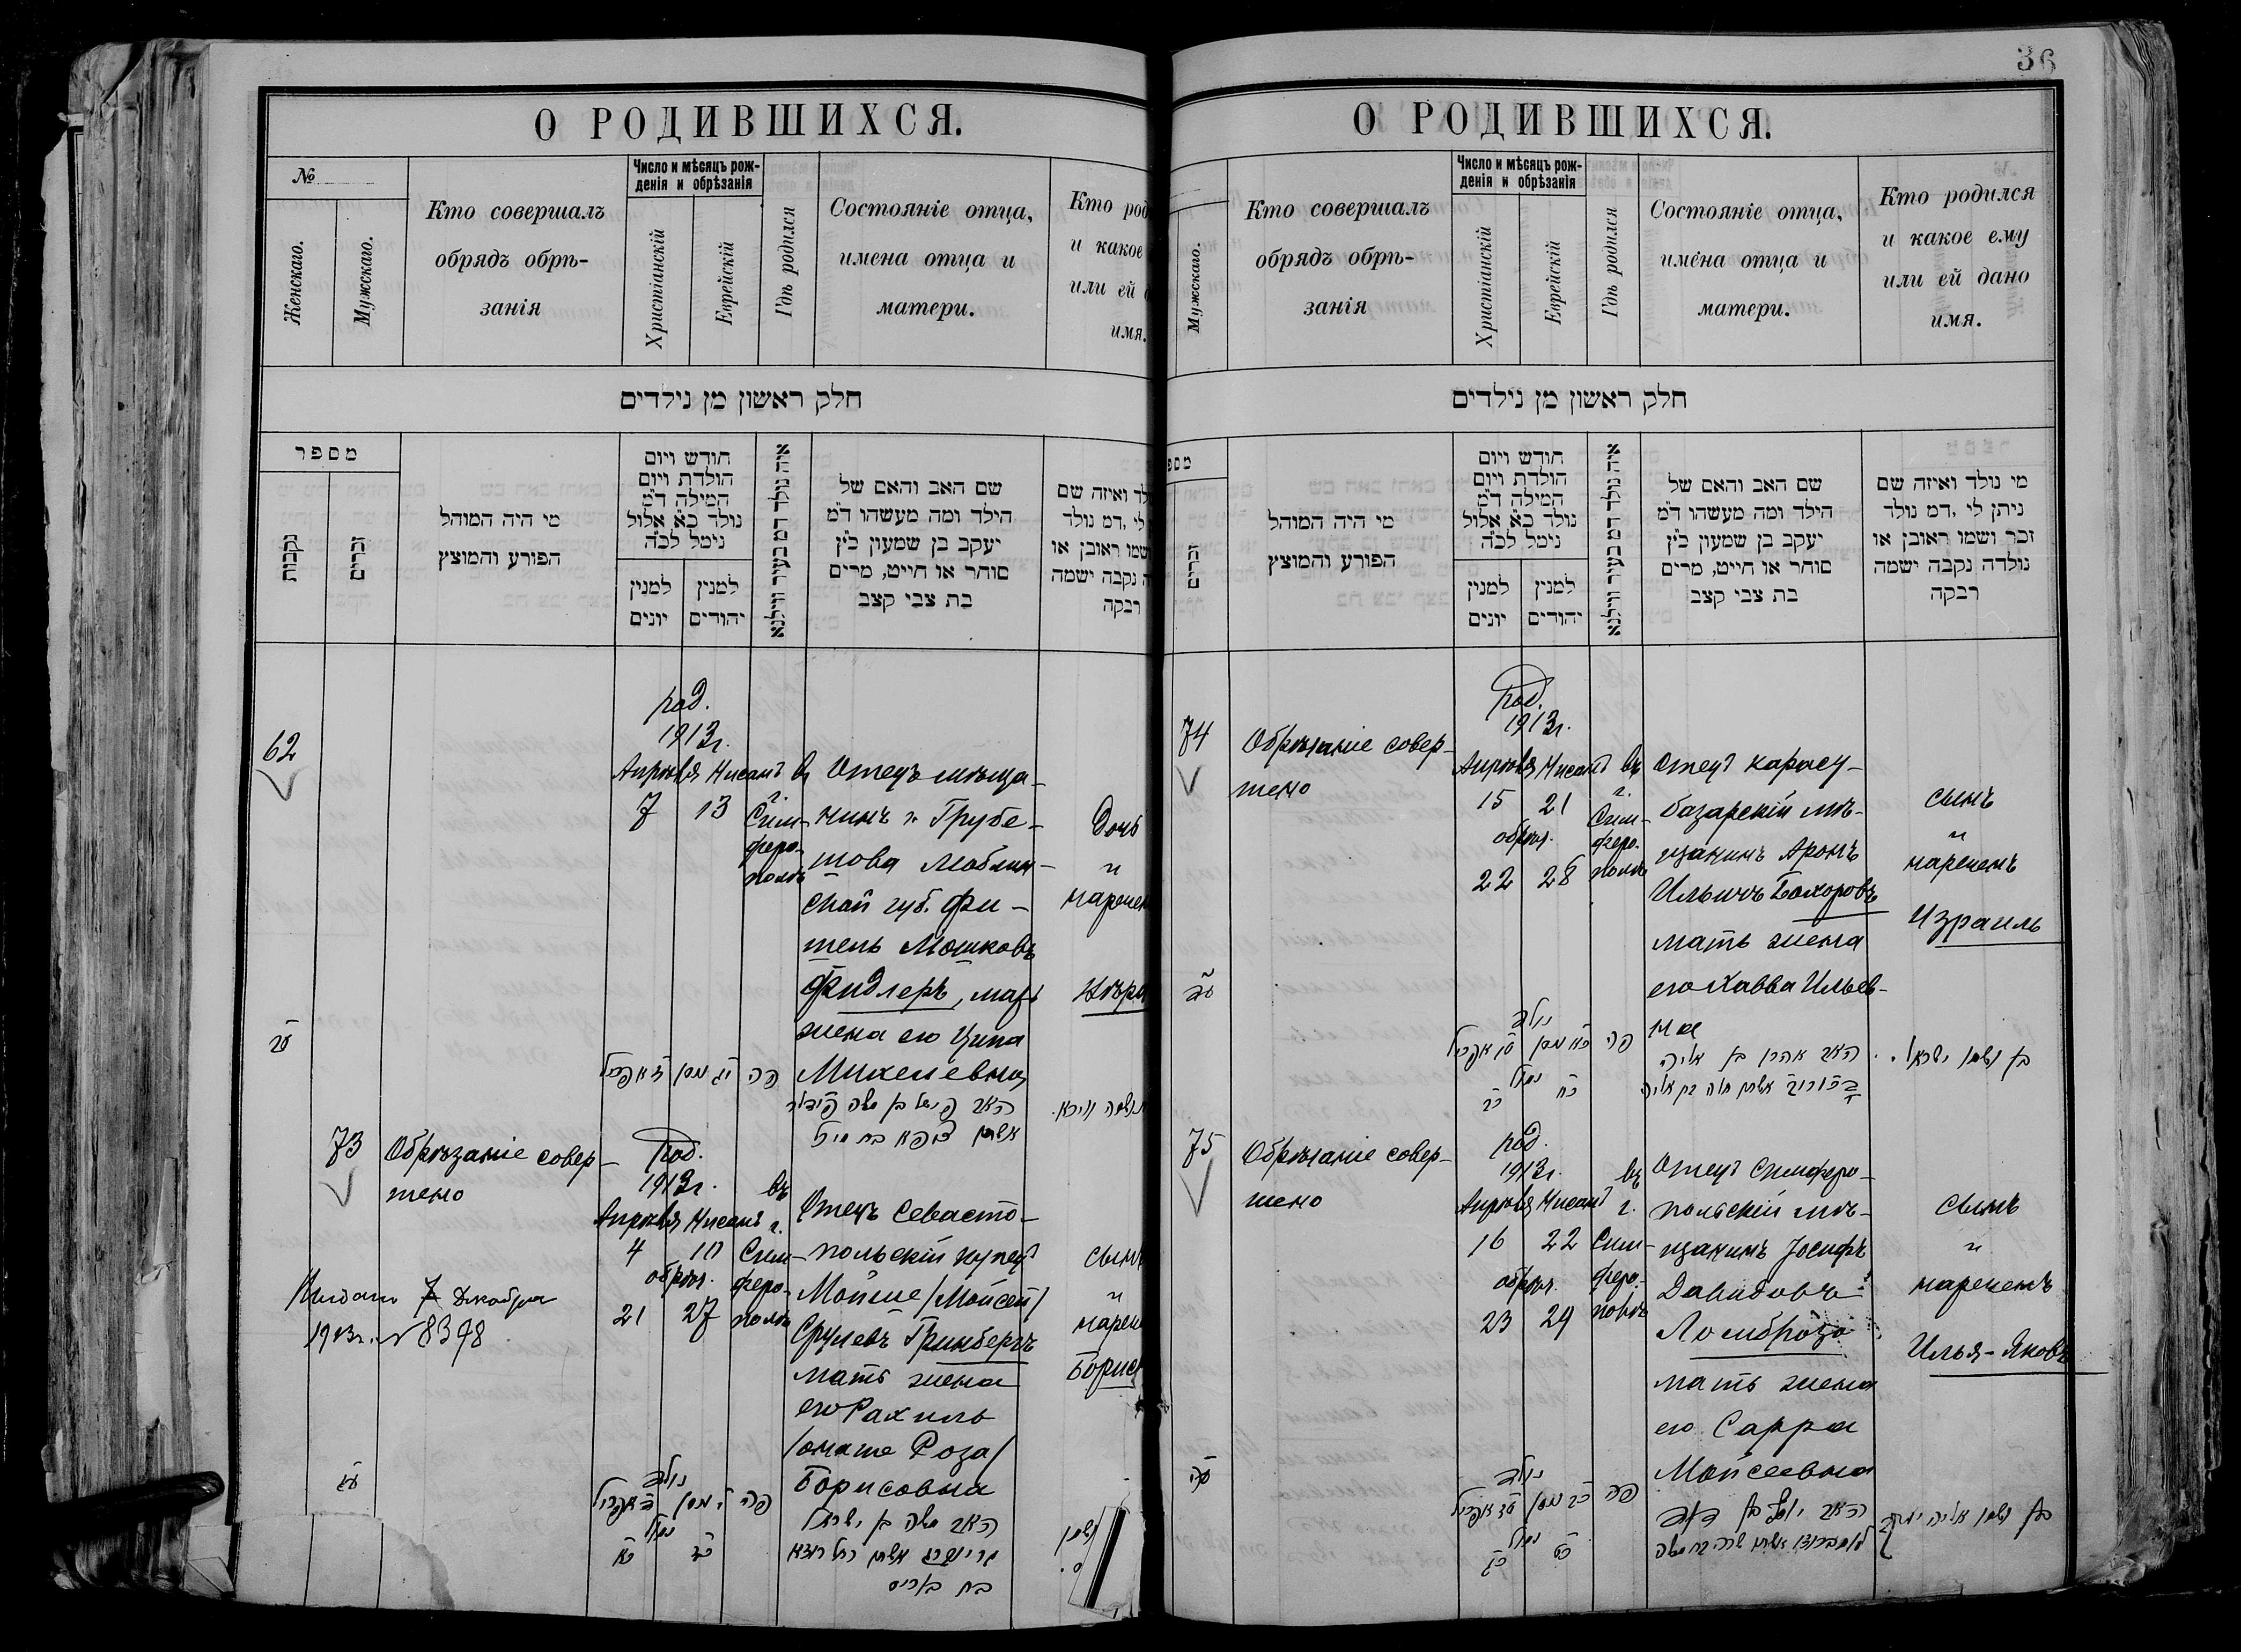 О РОДИВШИХСЯ.
№
Женскаго.
Мужскаго.
Кто совершалъ
обрядъ обрѣ-
занія
Число и мѣсяцъ рож-
денія и обрѣзанія
Христіанскій
Еврейскій
Гдѣ родился
Состояніе отца,
имена отца и
матери.
Кто род
и какое
или ей
имя.
חלק ראשון מן נילדים
מספר
נקבות
זכרים
מי היה המוהל
הפורע והמוצץ
חודש ויום
הולדת ויום
המילה ד"מ
נולד כ"א אלול
נימל לכ"ה
למנין
יונים
למנין
יהודים
איה נולד דמ בעיר ווילנא
שם האב והאם של
הילד ומה מעשהו ד"מ
יעקב בן שמעון כ"ץ
סוחר או חייט, מרים
בת צבי קצב
לד ואיזה שם
לי ,דמ נולד
שמו ראובן או
ה נקבה ישמה
רבקה
62
род.
1913г.
Апрѣля Нисанъ
7 13
в
г.
Сим-
феро-
полѣ
Отецъ мѣща-
нинъ г. Грубе-
шова Люблин-
ской губ. Фи-
тель Мошковъ
Фидлеръ, мать
жена его Ципа
Михелевна
Дочь
и
наречен
פה
73
Обрѣзаніе совер-
шено
род.
1913г.
Апрѣля Нисанъ
4 10
обрѣз.
21 27
въ
г.
Сим-
феро-
полѣ
Отецъ Севасто-
польскій купецъ
Мойше /Мойсей/
Срулевъ Гринбергъ
мать жена
его Рахиль
/онаже Роза/
Борисовна
сынъ
и
нарече
Борис
Выдано 7 Декабря
1913г. № 8398
נולד
נמול
פה
האב משה בן ישראל
גרינברג אשתו רחל רוזא
בת בוריס
36
О РОДИВШИХСЯ.
Мужскаго.
Кто совершалъ
обрядъ обрѣ-
занія
Число и мѣсяцъ рож-
денія и обрѣзанія
Христіанскій
Еврейскій
Гдѣ родился
Состояніе отца,
имена отца и
матери.
Кто родился
и какое ему
или ей дано
имя.
חלק ראשון מן נילדים
מספ
זכרים
מי היה המוהל
הפורע והמוצץ
חודש ויום
הולדת ויום
המילה ד"מ
נולד כ"א אלול
נימל לכ"ה
למנין
יונים
למנין
יהודים
איה נולד דמ בעיר ווילנא
שם האב והאם של
הילד ומה מעשהו ד"מ
יעקב בן שמעון כ"ץ
סוחר או חייט, מרים
בת צבי קצב
מי נולד ואיזה שם
ניתן לי ,דמ נולד
זכר ושמו ראובן או
נולדה נקבה ישמה
רבקה
74
Обрѣзаніе совер-
шено
род.
1913г.
Апрѣля Нисанъ
15 21
обрѣз.
22 28
въ
г.
Сим-
феро-
полѣ
Отецъ карасу-
базарскій мѣ-
щанинъ Аронъ
Ильичъ Бахоровъ
мать жена
его Хавва Ильев-
на
сынъ
и
нареченъ
Израиль
נולד
נמול
פה
האב אהרן בן אליה
בן ושמו ישראל.
75
Обрѣзаніе совер-
шено
род.
1913г.
Апрѣля Нисанъ
16 22
обрѣз.
23 29
въ
г.
Сим-
феро-
полѣ
Отецъ Симферо-
польскій мѣ-
щанинъ Іосифъ
Давидовъ
Ломброзо
мать жена
его Сарра
Мойсеевна
сынъ
и
нареченъ
Илья-Яковъ
נולד
נמול
פה
האב יוסף בן דוד
לומברוזו אשתו שרה בת משה
בן ושמו אליה יעקב